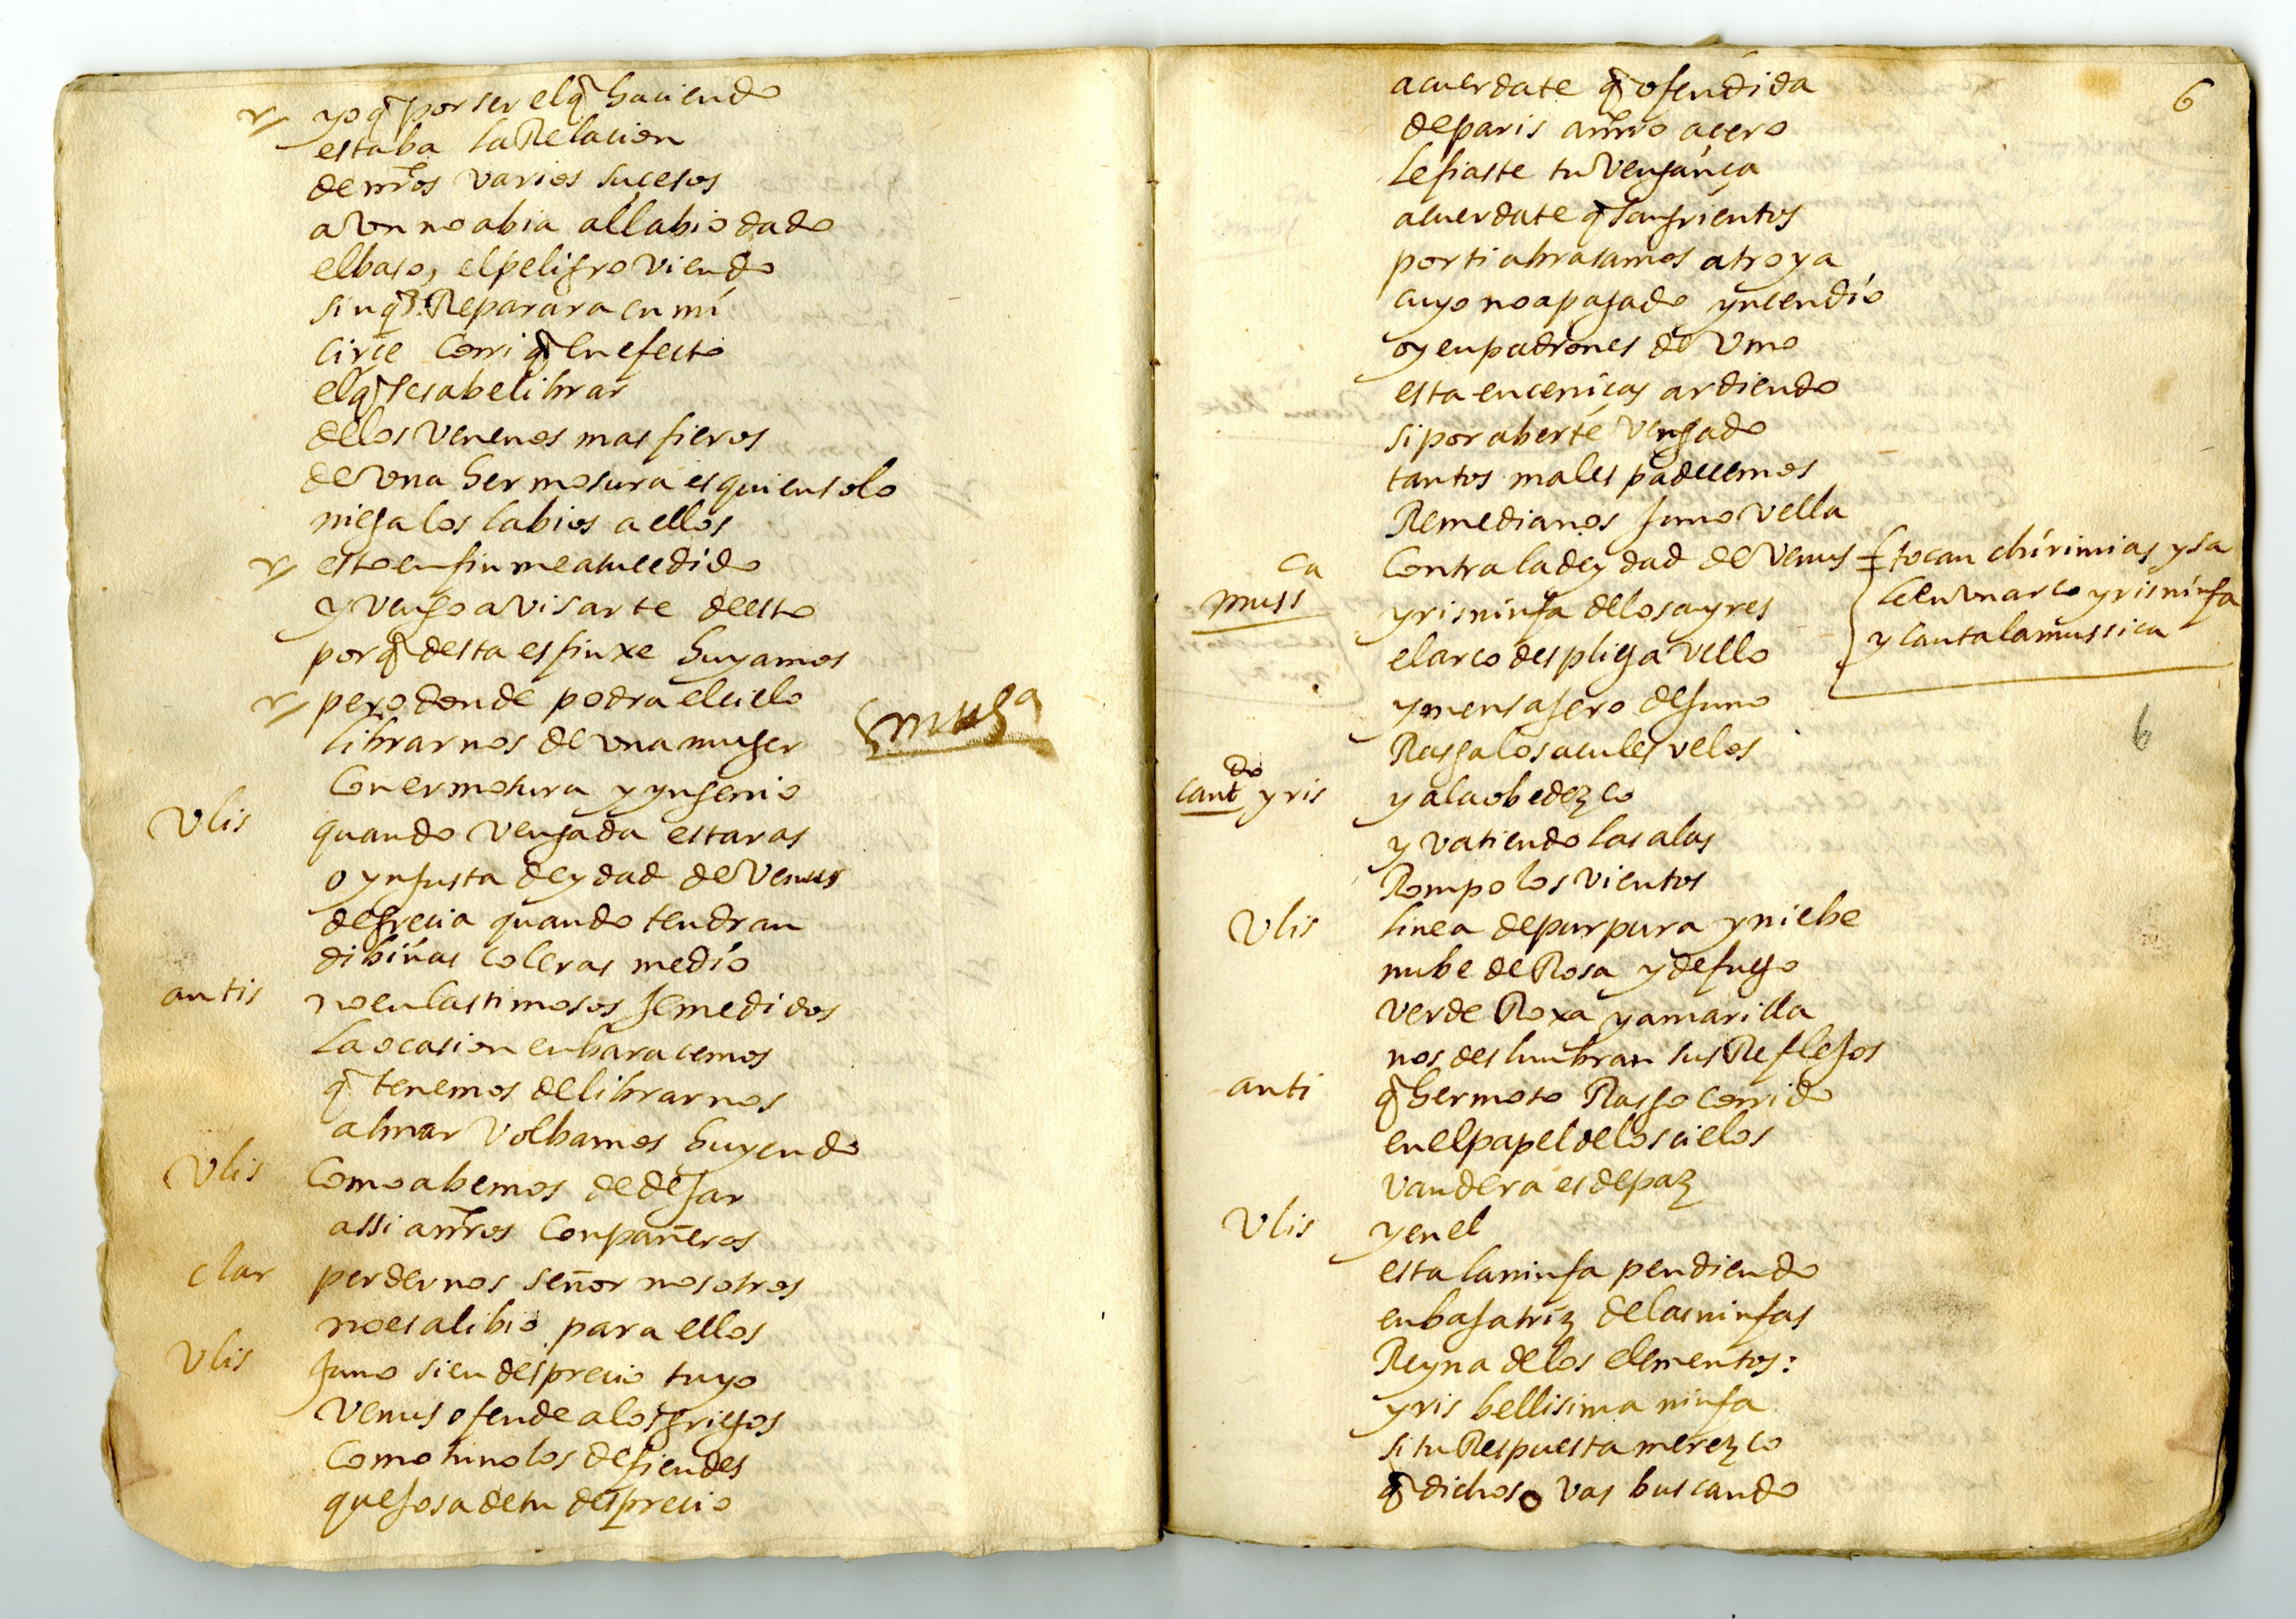 yo q̃ por ser el q̃ haciendo
estaba la Relacion
de nr̃os varios sucesos
aun no abia al labio dado
el baso, el peligro viendo
sin q̃ Reparara en mi
circe corri q̃ en efecto
el q̃ se sabe librar
de los venenos mas fieros
de una hermosura es quien solo
niega los labios a ellos
esto en fin me a sucedido
y vengo avisarte de esto
porq̃ desta esfinxe huyamos
pero donde podra el cielo
librarnos de una muger
musa
con ermosura y yngenio
Vlis quando vengada estaras
o ynjusta deydad de Venus
de grecia quando tendran
dibinas coleras medio
antis no en lastimosos jemedidos
la ocasion enbaracemos
q̃ tenemos de librarnos
al mar volbamos huyendo
Vlis como abemos de dejar
assi a nr̃os conpañeros
clar perdernos señor nosotros
no es alibio para ellos
Vlis Juno si en desprecio tuyo
Venus ofende a los griegos
como tu no los defiendes
quejosa de tu desprecio
6
acuerdate q̃ ofendida
de paris a nr̃o acero
le fiaste tu venganca
acuerdate q̃ sangrientos
por ti abrasamos a troya
cuyo no apagado yncendio
oy en padrones de vmo
esta en cenicas ardiendo
si por aberte vengado
tantos males padecemos
Remedianos Juno vella
contra la deydad de Venus
tocan chirimias y sa
le en un arco yris ninfa
y canta la mussica
mussca yris ninfa de los ayres
el arco despliega vello
y mensajero de Juno
Rasga los acules velos
cantdo yris ya la obedezco
y vatiendo las alas
Rompo los vientos
Vlis linea de purpura y niebe
nube de Rosa y de fuego
verde Roxa y amarilla
nos deslumbran sus Reflejos
anti q̃ hermoso Rasgo corrido
en el papel de los cielos
vandera es de paz
Vlis y en el
esta la ninfa pendiendo
enbajatriz de las ninfas
Reyna de los elementos:
yris bellisima ninfa
si tu Respuesta merezco
q̃ dichoso vas buscando
6